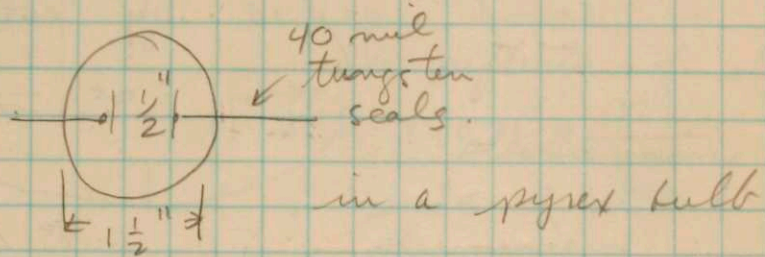 40 mil
tungsten
seals.
1/2"
in a pyrex bulb
1 1/2"